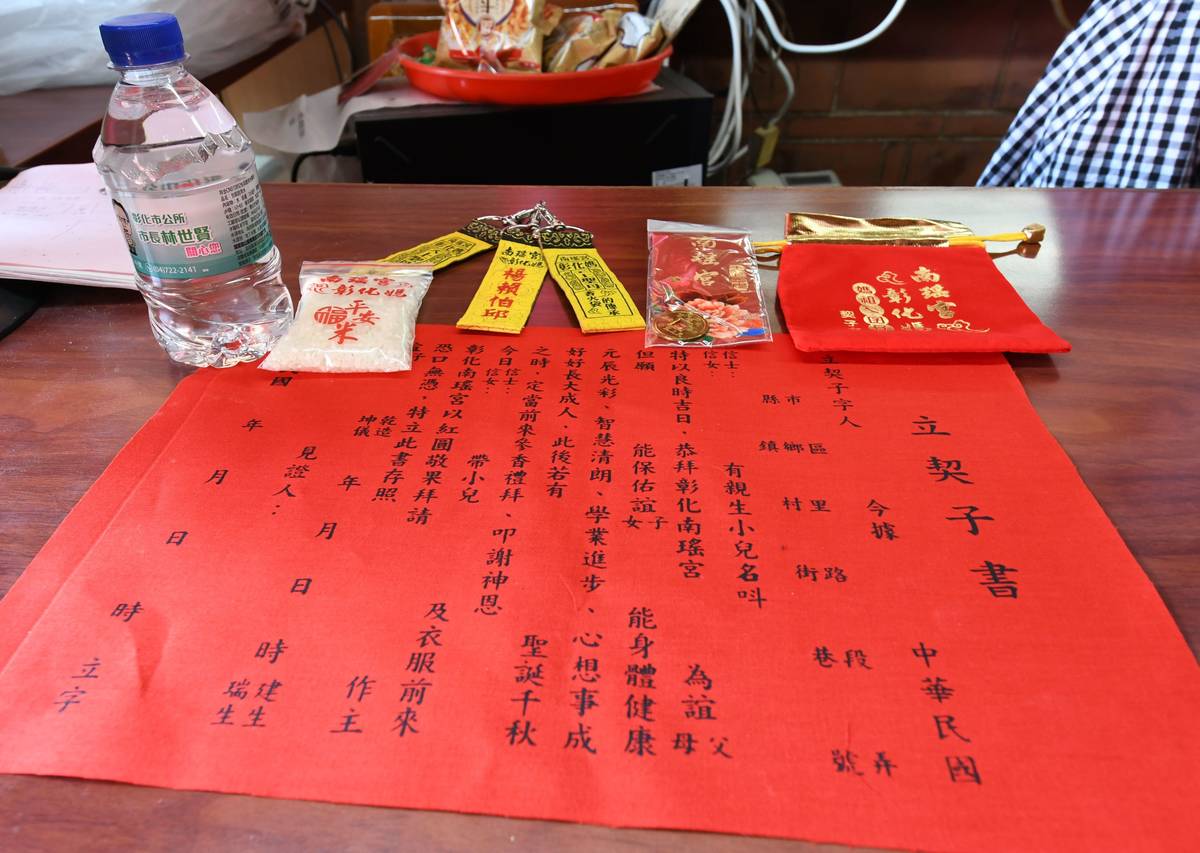 彰化市公所
市長林世賢
關心您
(04)722-2141
南瑤宮
彰化媽
平安
米
南瑤宮
彰化媽
楊賴伯邱
彰化媽
南瑤宮
南瑤宮
彰化媽
契子
立契子書
立契子字人 今據 中華民國
縣市 鎮鄉區 村里 街路 巷段 號弄
信士:
信女: 有親生小兒名叫
特以良時吉日、恭拜彰化南瑤宮 為誼父母
但願 能保佑誼子女 能身體健康
元辰光彩、智慧清朗、學業進步、心想事成
好好長大成人、此後若有
之時、定當前來參香禮拜、叩謝神恩 聖誕千秋
今日信士:
信女: 帶小兒 及衣服前來
彰化南瑤宮以紅圓敬果拜請 作主
恐口無憑、特立此書存照
乾造
坤儀 年 月 日 時 建生
瑞生
見證人:
國 年 月 日 時 立字